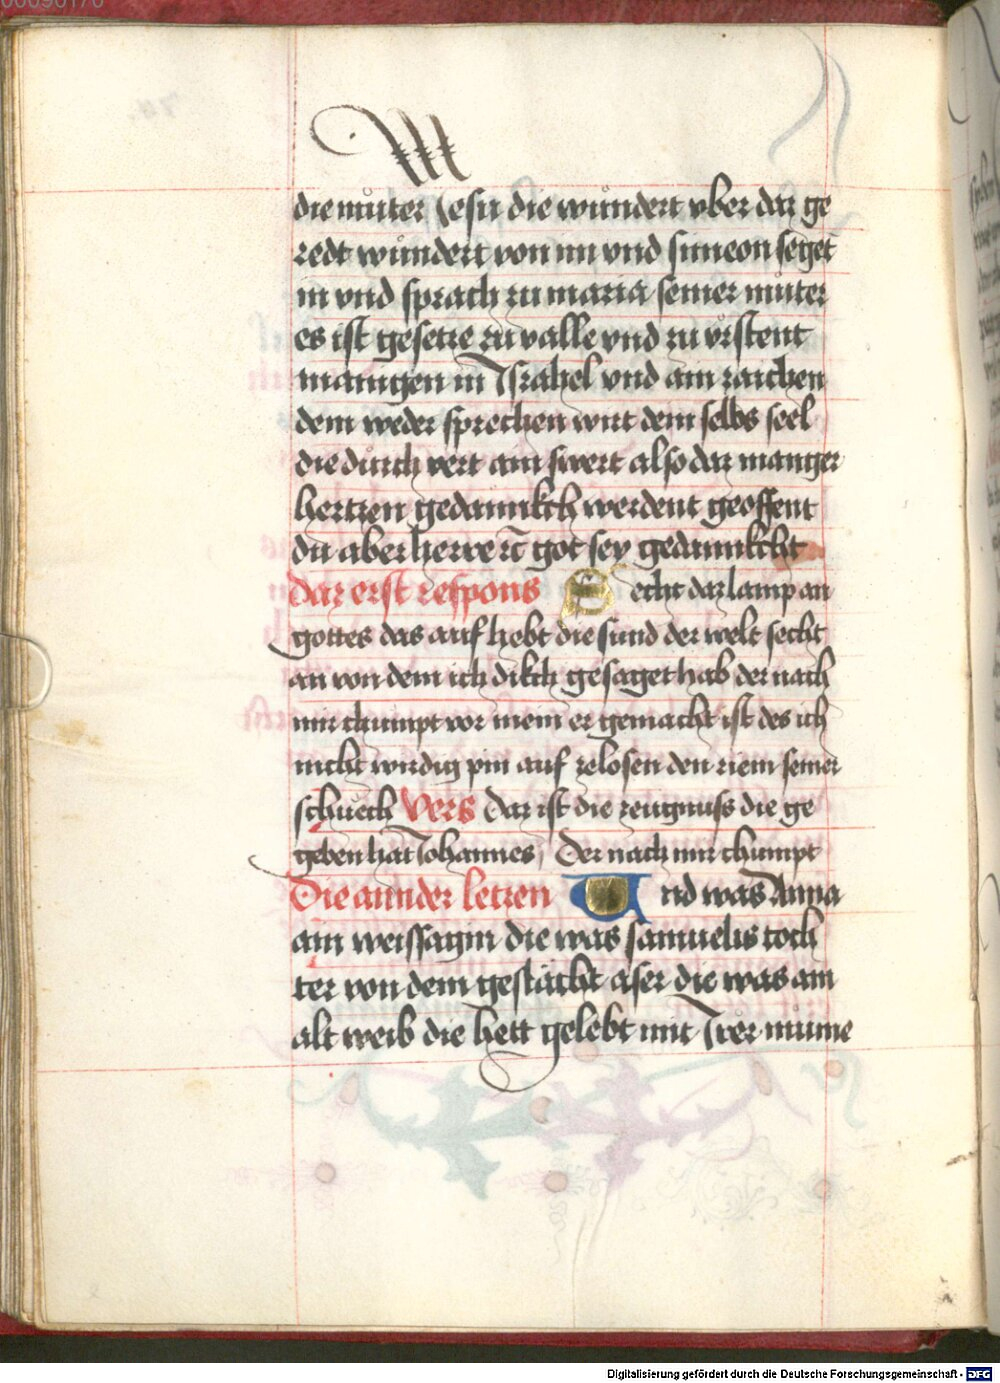 00090170
die můter Jesu die wůndert vber daz ge
redt wůndert von im vnd simeon seget
in vnd sprach zu maria seiner můter
es ist gesetze zu valle vnd zu vrstent
manigen in Israhel vnd ain zaichen
dem weder sprechen wirt dein selbs seel
die důrch vert ain swert also daz manger
hertzen gedannkch werdent geoffent
du aber got sey gedannkcht
daz erst respons Secht daz lamp an
gottes das auf hebt die sund der welt secht
an von dem ich dikch gesaget hab der nach
mir chumpt vor mein er gemacht ist des ich
nicht wirdig pin auf zelosen den riem seiner
schuech Vers Daz ist die zeugnuss die ge
geben hat Johannes Der nach mir chumpt
Die annder letzen Und was Anna
ain weissagin die was samuelis toch
ter von dem geslächt aser die was ain
alt weib die hett gelebt mit Irer mume
Digitalisierung gefördert durch die Deutsche Forschungsgemeinschaft - DFG